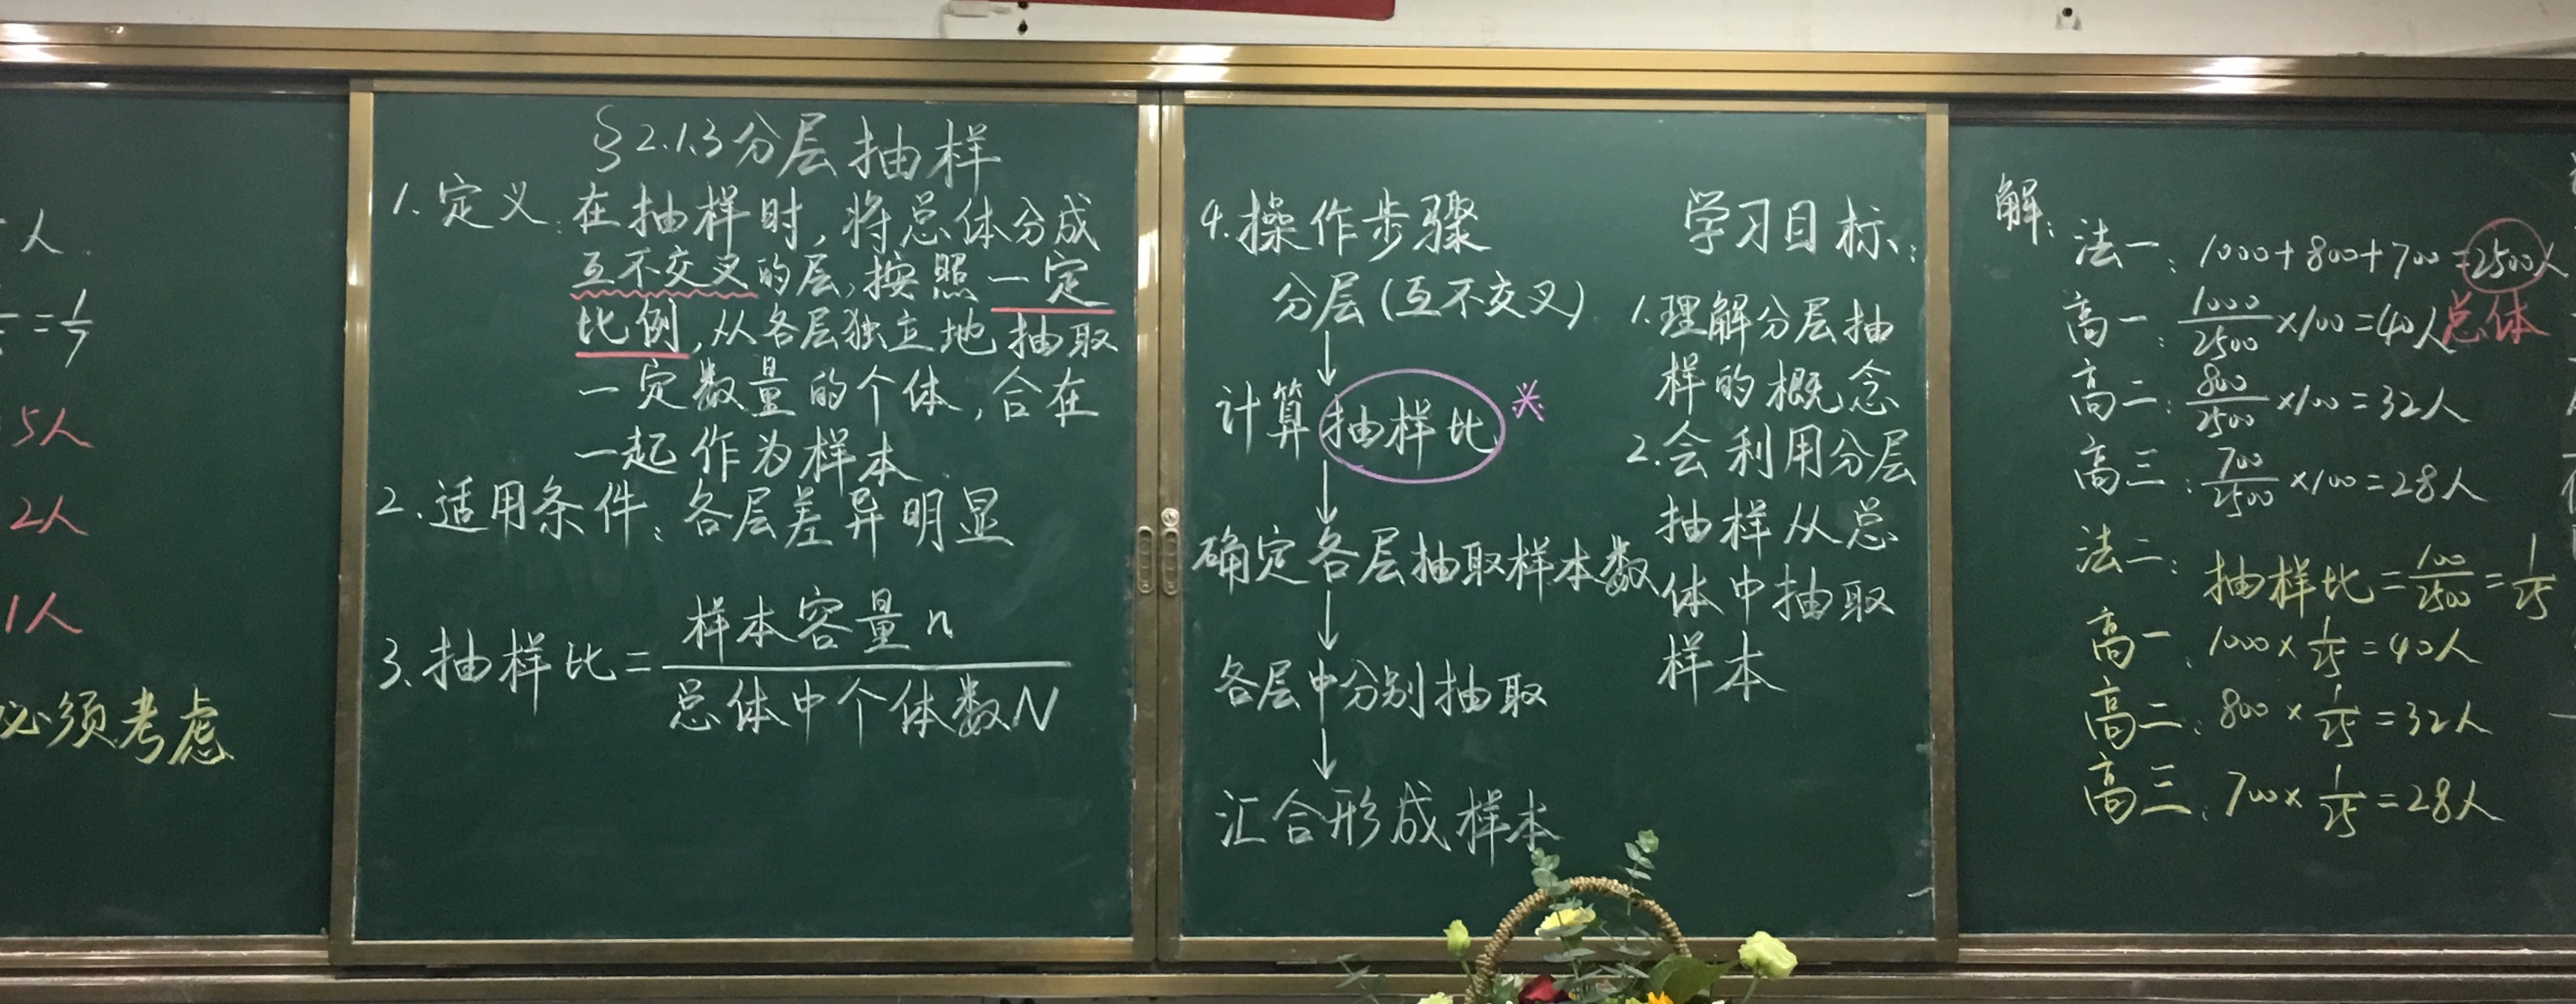 人
=1/7
5人
2人
1人
必须考虑
§2.1.3分层抽样
1.定义:在抽样时,将总体分成
互不交叉的层,按照一定
比例,从各层独立地抽取
一定数量的个体,合在
一起作为样本
2.适用条件:各层差异明显
3.抽样比=样本容量n/总体中个体数N
4.操作步骤
分层(互不交叉)
↓
计算抽样比*
↓
确定各层抽取样本数
↓
各层中分别抽取
↓
汇合形成样本
学习目标:
1.理解分层抽
样的概念
2.会利用分层
抽样从总
体中抽取
样本
解:
法一:1000+800+700=2500人
总体
高一:1000/2500×100=40人
高二:800/2500×100=32人
高三:700/2500×100=28人
法二:抽样比=100/2500=1/25
高一:1000×1/25=40人
高二:800×1/25=32人
高三:700×1/25=28人